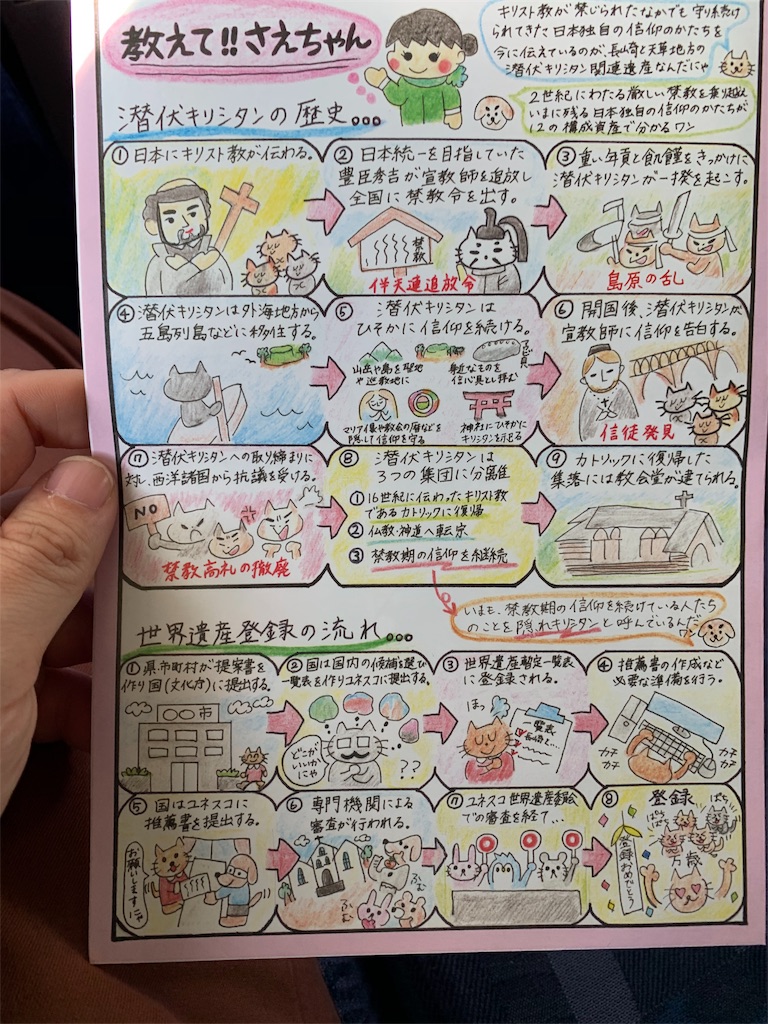 教えて!!さえちゃん
キリスト教が禁じられたなかでも守り続け
られてきた日本独自の信仰のかたちを
今に伝えているのが、長崎と天草地方の
潜伏キリシタン関連遺産なんだにゃ
2世紀にわたる厳しい禁教を乗り越え
いまに残る日本独自の信仰のかたちが
12の構成資産で分かるワン
潜伏キリシタンの歴史...
①日本にキリスト教が伝わる。
②日本統一を目指していた
豊臣秀吉が宣教師を追放し
全国に禁教令を出す。
禁教
伴天連追放令
③重い年貢と飢饉をきっかけに
潜伏キリシタンが一揆を起こす。
島原の乱
④潜伏キリシタンは外海地方から
五島列島などに移住する。
⑤潜伏キリシタンは
ひそかに信仰を続ける。
山岳や島を聖地
や巡教地に
身近なものを
信心具として拝む
マリア像や教会の暦などを
隠して信仰を守る
神社にひそかに
キリシタンを祀る
⑥開国後、潜伏キリシタンが
宣教師に信仰を告白する。
信徒発見
⑦潜伏キリシタンへの取り締まりに
対し、西洋諸国から抗議を受ける。
NO
禁教高札の撤廃
⑧潜伏キリシタンは
3つの集団に分離
①16世紀に伝わったキリスト教
であるカトリックに復帰
②仏教・神道へ転宗
③禁教期の信仰を継続
⑨カトリックに復帰した
集落には教会堂が建てられる。
いまも、禁教期の信仰を続けている人たち
のことを隠れキリシタンと呼んでいるんだ
ワン
世界遺産登録の流れ...
①県市町村が提案書を
作り国(文化庁)に提出する。
○○市
②国は国内の候補を選び
一覧表を作りユネスコに提出する。
どこが
いいか
にゃ
??
③世界遺産暫定一覧表
に登録される。
ほっ
一覧表
長崎と...
④推薦書の作成など
必要な準備を行う。
カチ
カチ
カチ
カチ
⑤国はユネスコに
推薦書を提出する。
お願いしますにゃ
⑥専門機関による
審査が行われる。
ふむ
ふむ
⑦ユネスコ世界遺産委員会
での審査を経て...
⑧登録
ぱち
ぱち
ぱち
万歳
登録おめでとう